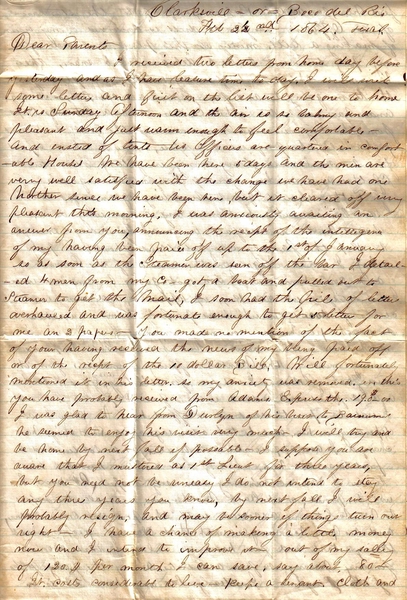 Clarksvill - or - Boca del Rio
Feb 22nd 1864. Texas
Dear Parents
I received two letters from home day before
yesterday and as I have leasure time to day, I will write
some letters and first on the list will be one to home
It is Sunday afternoon and the air is as balmy and
pleasant and just warm enough to feel comfortable
and insted of tents - us officers are quartered in comfort-
able Houses We have been here 6 days and the men are
very well satisfied with the change we have had one
Norther since we have been here but it cleared off very
pleasant this morning. I was anxiously awaiting an
answer from you announcing the recpt of the intelligence
of my having been paid off up to the 1st of January
so as soon as the Steamer was seen off the bar I detail-
ed 4 men from my Co. got a boat and pulled out to
Steamer to get the Mail, I soon had the pile of letters
overhauled and was fortunate enough to get 5 letters for
me and 3 papers - You made no mention of the fact
of your having received the news of my being paid off
or of the of the 10 dollar Bill, Will fortunately
mentioned it in his letter so my anxiety was relieved, in this
you have probably received from Adams Express the
I was glad to hear from of his
he seemed to enjoy his visit very much. I will try and
be home by next fall if possable I suppose you are
aware that I mustered as 1st Lieut for three years,
but you need not be uneasy I do not intend to stay
any three years you know, by next fall I will
probably resign, and may be sooner if things turn out
right - I have a chance of making a little money
now and I intend to improve it - out of my salary
of 120 $ per month I can save, say about, 80 -
It costs considerable to live - keep a servant, cloth and